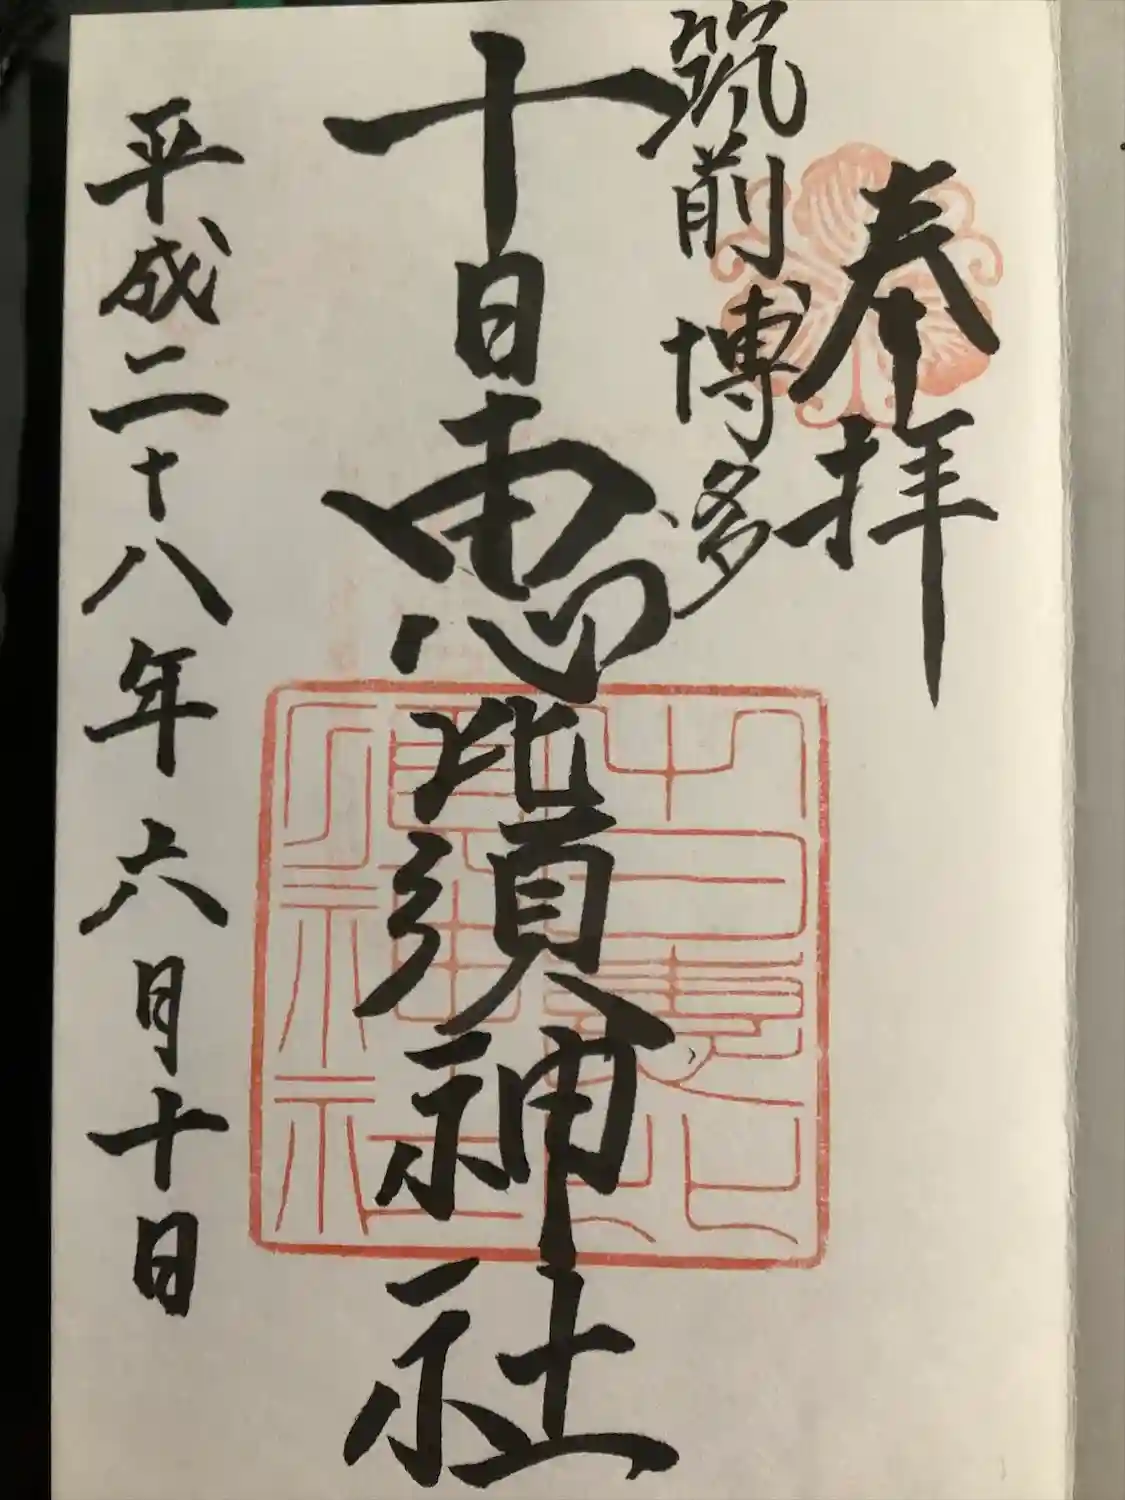 奉拝
筑前博多
十日恵比須神社
平成二十八年六月十日
十日恵比
須神社